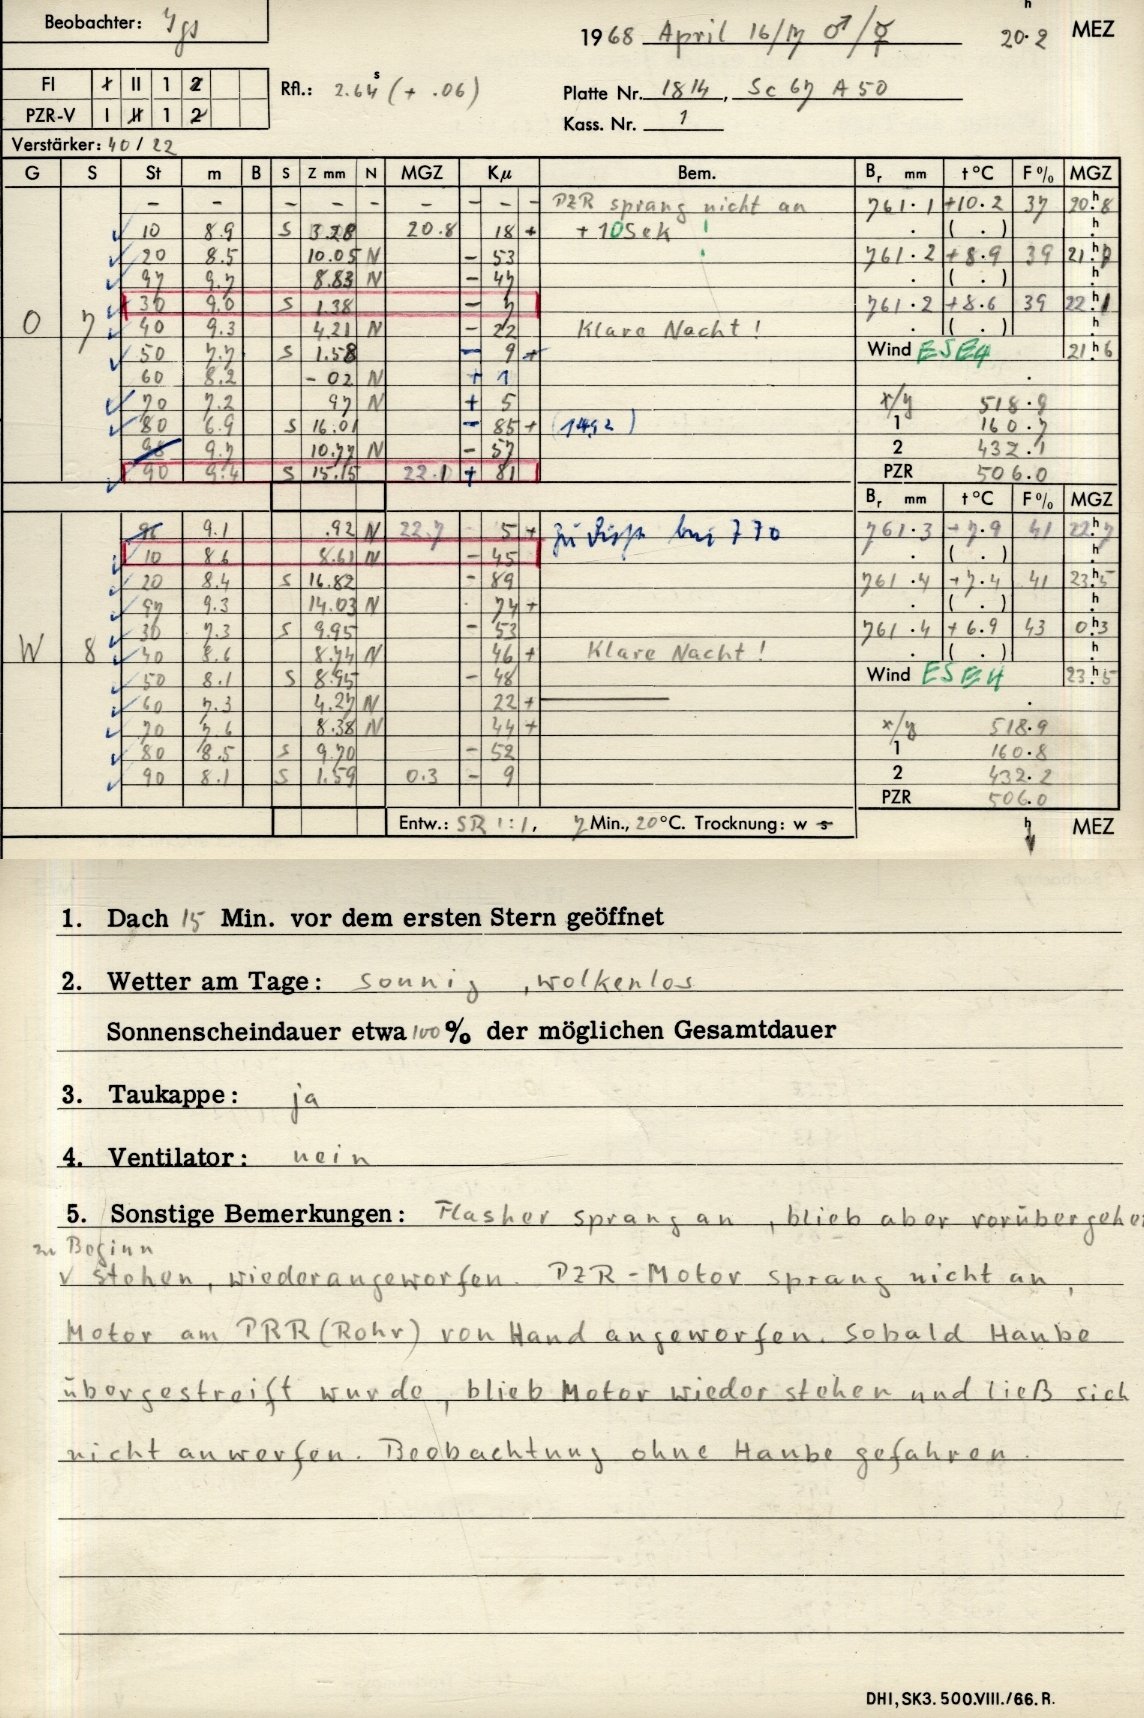 Beobachter: Jgs
1968 April 16/17 ♂/☿ 20.2 h MEZ
FI I II 1 2
PZR-V I II 1 2
Rfl.: 2.64 s (+ .06)
Platte Nr. 1814, Sc 67 A 50
Kass. Nr. 1
Verstärker: 40 / 22
G S St m B S Z mm N MGZ Kµ Bem. Br mm t °C F % MGZ
- - - - - - - - - PZR sprang nicht an 761.1 +10.2 37 20.h8
10 8.9 S 3.28 20.8 18 + + 10Sek ! . ( . ) h
20 8.5 10.05 N - 53 761.2 +8.9 39 21.h
97 9.7 8.83 N - 47 . ( . ) h
30 9.0 S 1.38 - 7 761.2 +8.6 39 22.h1
O 7 40 9.3 4.21 N - 22 Klare Nacht! . ( . ) h
50 7.7 S 1.58 - 9 + Wind ESE4 21.h6
60 8.2 - 02 N + 1
70 7.2 97 N + 5 x/y 518.9
80 6.9 S 16.01 - 85 + (1492) 1 160.7
98 9.7 10.77 N - 57 2 432.1
90 9.4 S 15.15 22.1 + 81 PZR 506.0
Br mm t °C F % MGZ
9.1 .92 N 22.7 - 5 + bei 770 761.3 +7.9 41 22.h7
10 8.6 8.61 N - 45 . ( . ) h
20 8.4 S 16.82 - 89 761.4 +7.4 41 23.h5
97 9.3 14.03 N - 74 + . ( . ) h
30 7.3 S 9.95 - 53 761.4 +6.9 43 0.h3
W 8 40 8.6 8.74 N 46 + Klare Nacht! . ( . ) h
50 8.1 S 8.95 - 48 Wind ESE4 23.h5
60 7.3 4.27 N 22 +
70 7.6 8.38 N 44 + x/y 518.9
80 8.5 S 9.70 - 52 1 160.8
90 8.1 S 1.59 0.3 - 9 2 432.2
PZR 506.0
Entw.: SR 1:1, 7 Min., 20 °C. Trocknung: w s h MEZ
1. Dach 15 Min. vor dem ersten Stern geöffnet
2. Wetter am Tage: sonnig, wolkenlos
Sonnenscheindauer etwa 100 % der möglichen Gesamtdauer
3. Taukappe: ja
4. Ventilator: nein
5. Sonstige Bemerkungen: Flasher sprang an, blieb aber vorübergehe
zu Beginn
stehen, wiederangeworfen. PZR-Motor sprang nicht an,
Motor am PRR (Rohr) von Hand angeworfen. Sobald Haube
übergestreift wurde, blieb Motor wieder stehen und ließ sich
nicht anwerfen. Beobachtung ohne Haube gefahren.
DHI, SK3. 500.VIII./66. R.